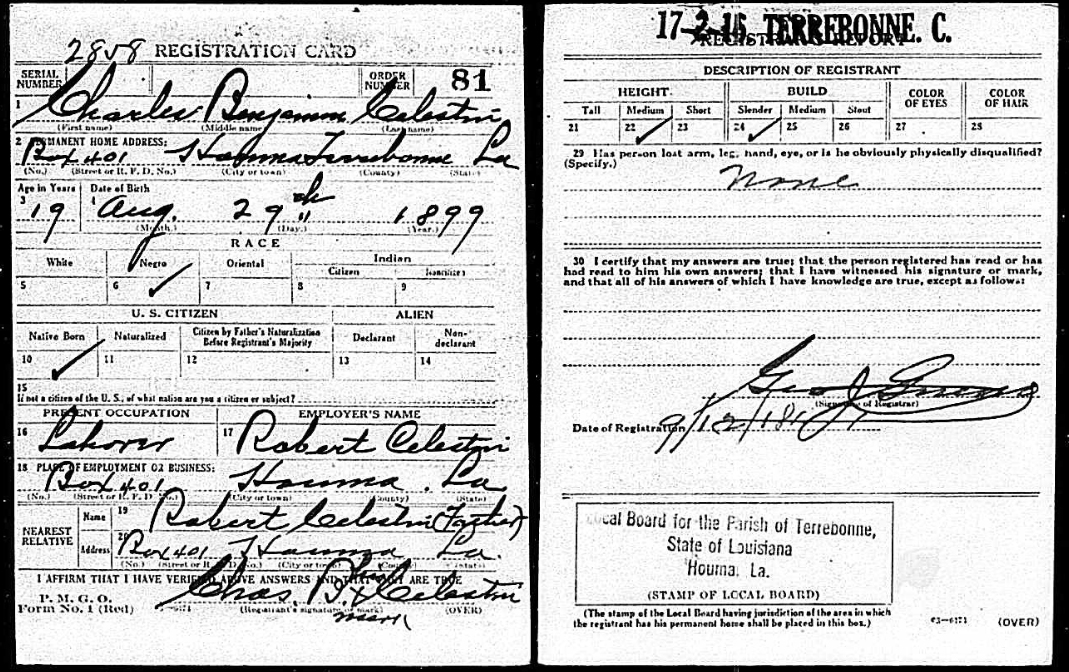 2858 REGISTRATION CARD
SERIAL NUMBER
ORDER NUMBER 81
1 Charles Benjamin Celestin
(First name) (Middle name) (Last name)
2 PERMANENT HOME ADDRESS:
Box 401 Houma Terrebonne La
(No.) (Street or R. F. D. No.) (City or town) (County) (State)
Age in Years Date of Birth
3 19 4 Aug. 29th 1899
(Month.) (Day.) (Year.)
RACE
White Negro Oriental Indian
Citizen Noncitizen
5 6 ✓ 7 8 9
U. S. CITIZEN ALIEN
Native Born Naturalized Citizen by Father's Naturalization Before Registrant's Majority Declarant Non-declarant
10 ✓ 11 12 13 14
15
If not a citizen of the U. S., of what nation are you a citizen or subject?
PRESENT OCCUPATION EMPLOYER'S NAME
16 Laborer 17 Robert Celestin
18 PLACE OF EMPLOYMENT OR BUSINESS:
Box 401 Houma. La
(No.) (Street or R. F. D. No.) (City or town) (County) (State)
NEAREST RELATIVE
Name 19 Robert Celestin (Father)
Address 20 Box 401 Houma La.
(No.) (Street or R. F. D. No.) (City or town) (County) (State)
I AFFIRM THAT I HAVE VERIFIED ABOVE ANSWERS AND THAT THEY ARE TRUE
P. M. G. O.
Form No. 1 (Red)
Chas B. his X Celestin
(Registrant's signature or mark) (OVER)
mark
17-2-16 TERREBONNE. C.
REGISTRAR'S REPORT
DESCRIPTION OF REGISTRANT
HEIGHT BUILD COLOR OF EYES COLOR OF HAIR
Tall Medium Short Slender Medium Stout
21 22 ✓ 23 24 ✓ 25 26 27 28
29 Has person lost arm, leg, hand, eye, or is he obviously physically disqualified?
(Specify.)
None
30 I certify that my answers are true; that the person registered has read or has
had read to him his own answers; that I have witnessed his signature or mark,
and that all of his answers of which I have knowledge are true, except as follows:
Geo J
(Signature of Registrar)
Date of Registration 9/12/18
Local Board for the Parish of Terrebonne,
State of Louisiana
Houma, La.
(STAMP OF LOCAL BOARD)
(The stamp of the Local Board having jurisdiction of the area in which
the registrant has his permanent home shall be placed in this box.)
03-6171 (OVER)